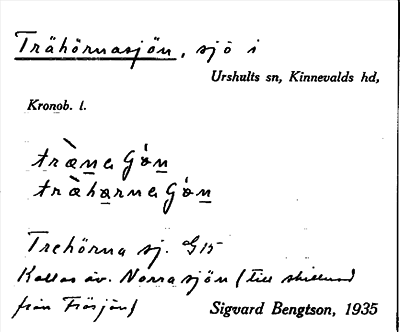 Trähörnasjön, sjö i
Urshults sn, Kinnevalds hd,
Kronob. l.
træ̀na ʃǿn
trä̀hærna ʃǿn
Trehörna sj. G15
Kallas äv. Norrasjön (till skillnad
från Frösjön)
Sigvard Bengtson, 1935